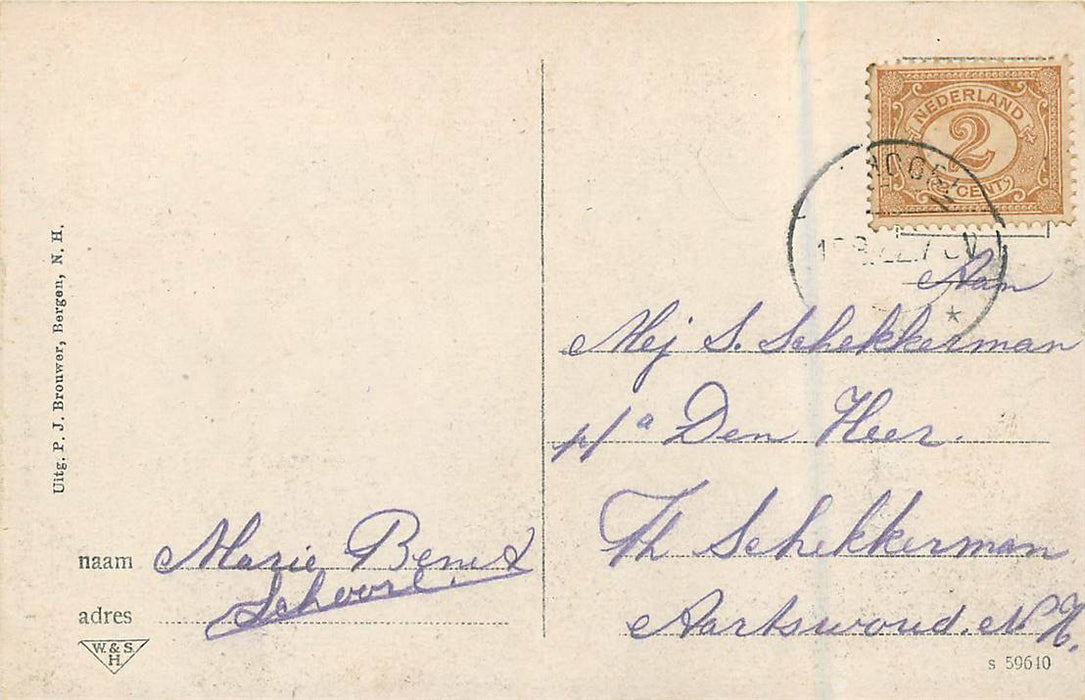 Uitg. P. J. Brouwer, Bergen, N. H.
naam Marie Bene
adres Schoorl.
W. & S.
H.
NEDERLAND
2
2 CENT
Aan
Mej S. Schekkerman
p/a Den Heer.
Th Schekkerman
Aartswoud. N H.
s 59610